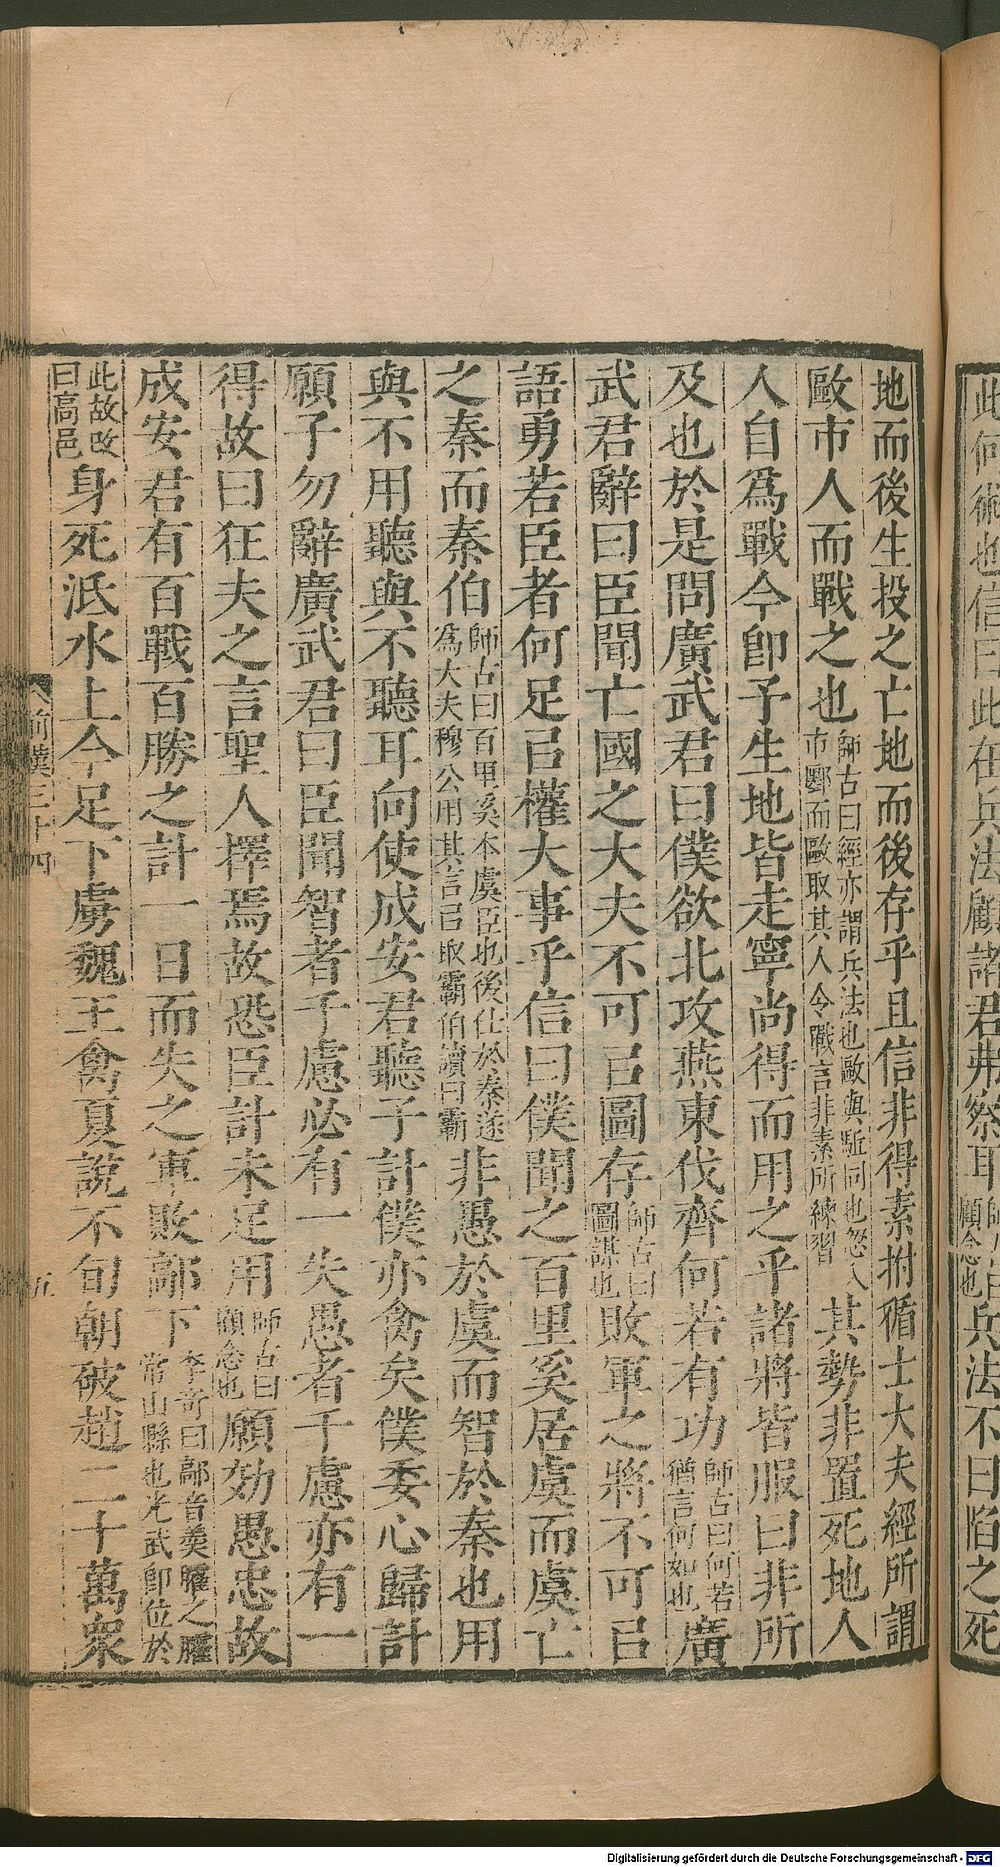 此何術也信曰此在兵法顧諸君弗察耳師古曰顧念也兵法不曰陷之死
地而後生投之亡地而後存乎且信非得素拊循士大夫經所謂
歐市人而戰之也師古曰經亦謂兵法也歐與驅同也忽入市鄽而歐取其人令戰言非素所練習其勢非置死地人
人自爲戰今即予生地皆走寧尚得而用之乎諸將皆服曰非所
及也於是問廣武君曰僕欲北攻燕東伐齊何若有功師古曰何若猶言何如也廣
武君辭曰臣聞亡國之大夫不可㠯圖存師古曰圖謀也敗軍之將不可㠯
語勇若臣者何足㠯權大事乎信曰僕聞之百里奚居虞而虞亡
之秦而秦伯師古曰百里奚本虞臣也後仕於秦遂爲大夫穆公用其言㠯取霸伯讀曰霸非愚於虞而智於秦也用
與不用聽與不聽耳向使成安君聽子計僕亦禽矣僕委心歸計
願子勿辭廣武君曰臣聞智者千慮必有一失愚者千慮亦有一
得故曰狂夫之言聖人擇焉故恐臣計未足用師古曰顧念也願効愚忠故
成安君有百戰百勝之計一日而失之軍敗鄗下李奇曰鄗音羹臛之臛常山縣也光武即位於
此故改曰高邑身死泜水上今足下虜魏王禽夏說不旬朝破趙二十萬衆
前漢三十四
五
Digitalisierung gefördert durch die Deutsche Forschungsgemeinschaft - DFG